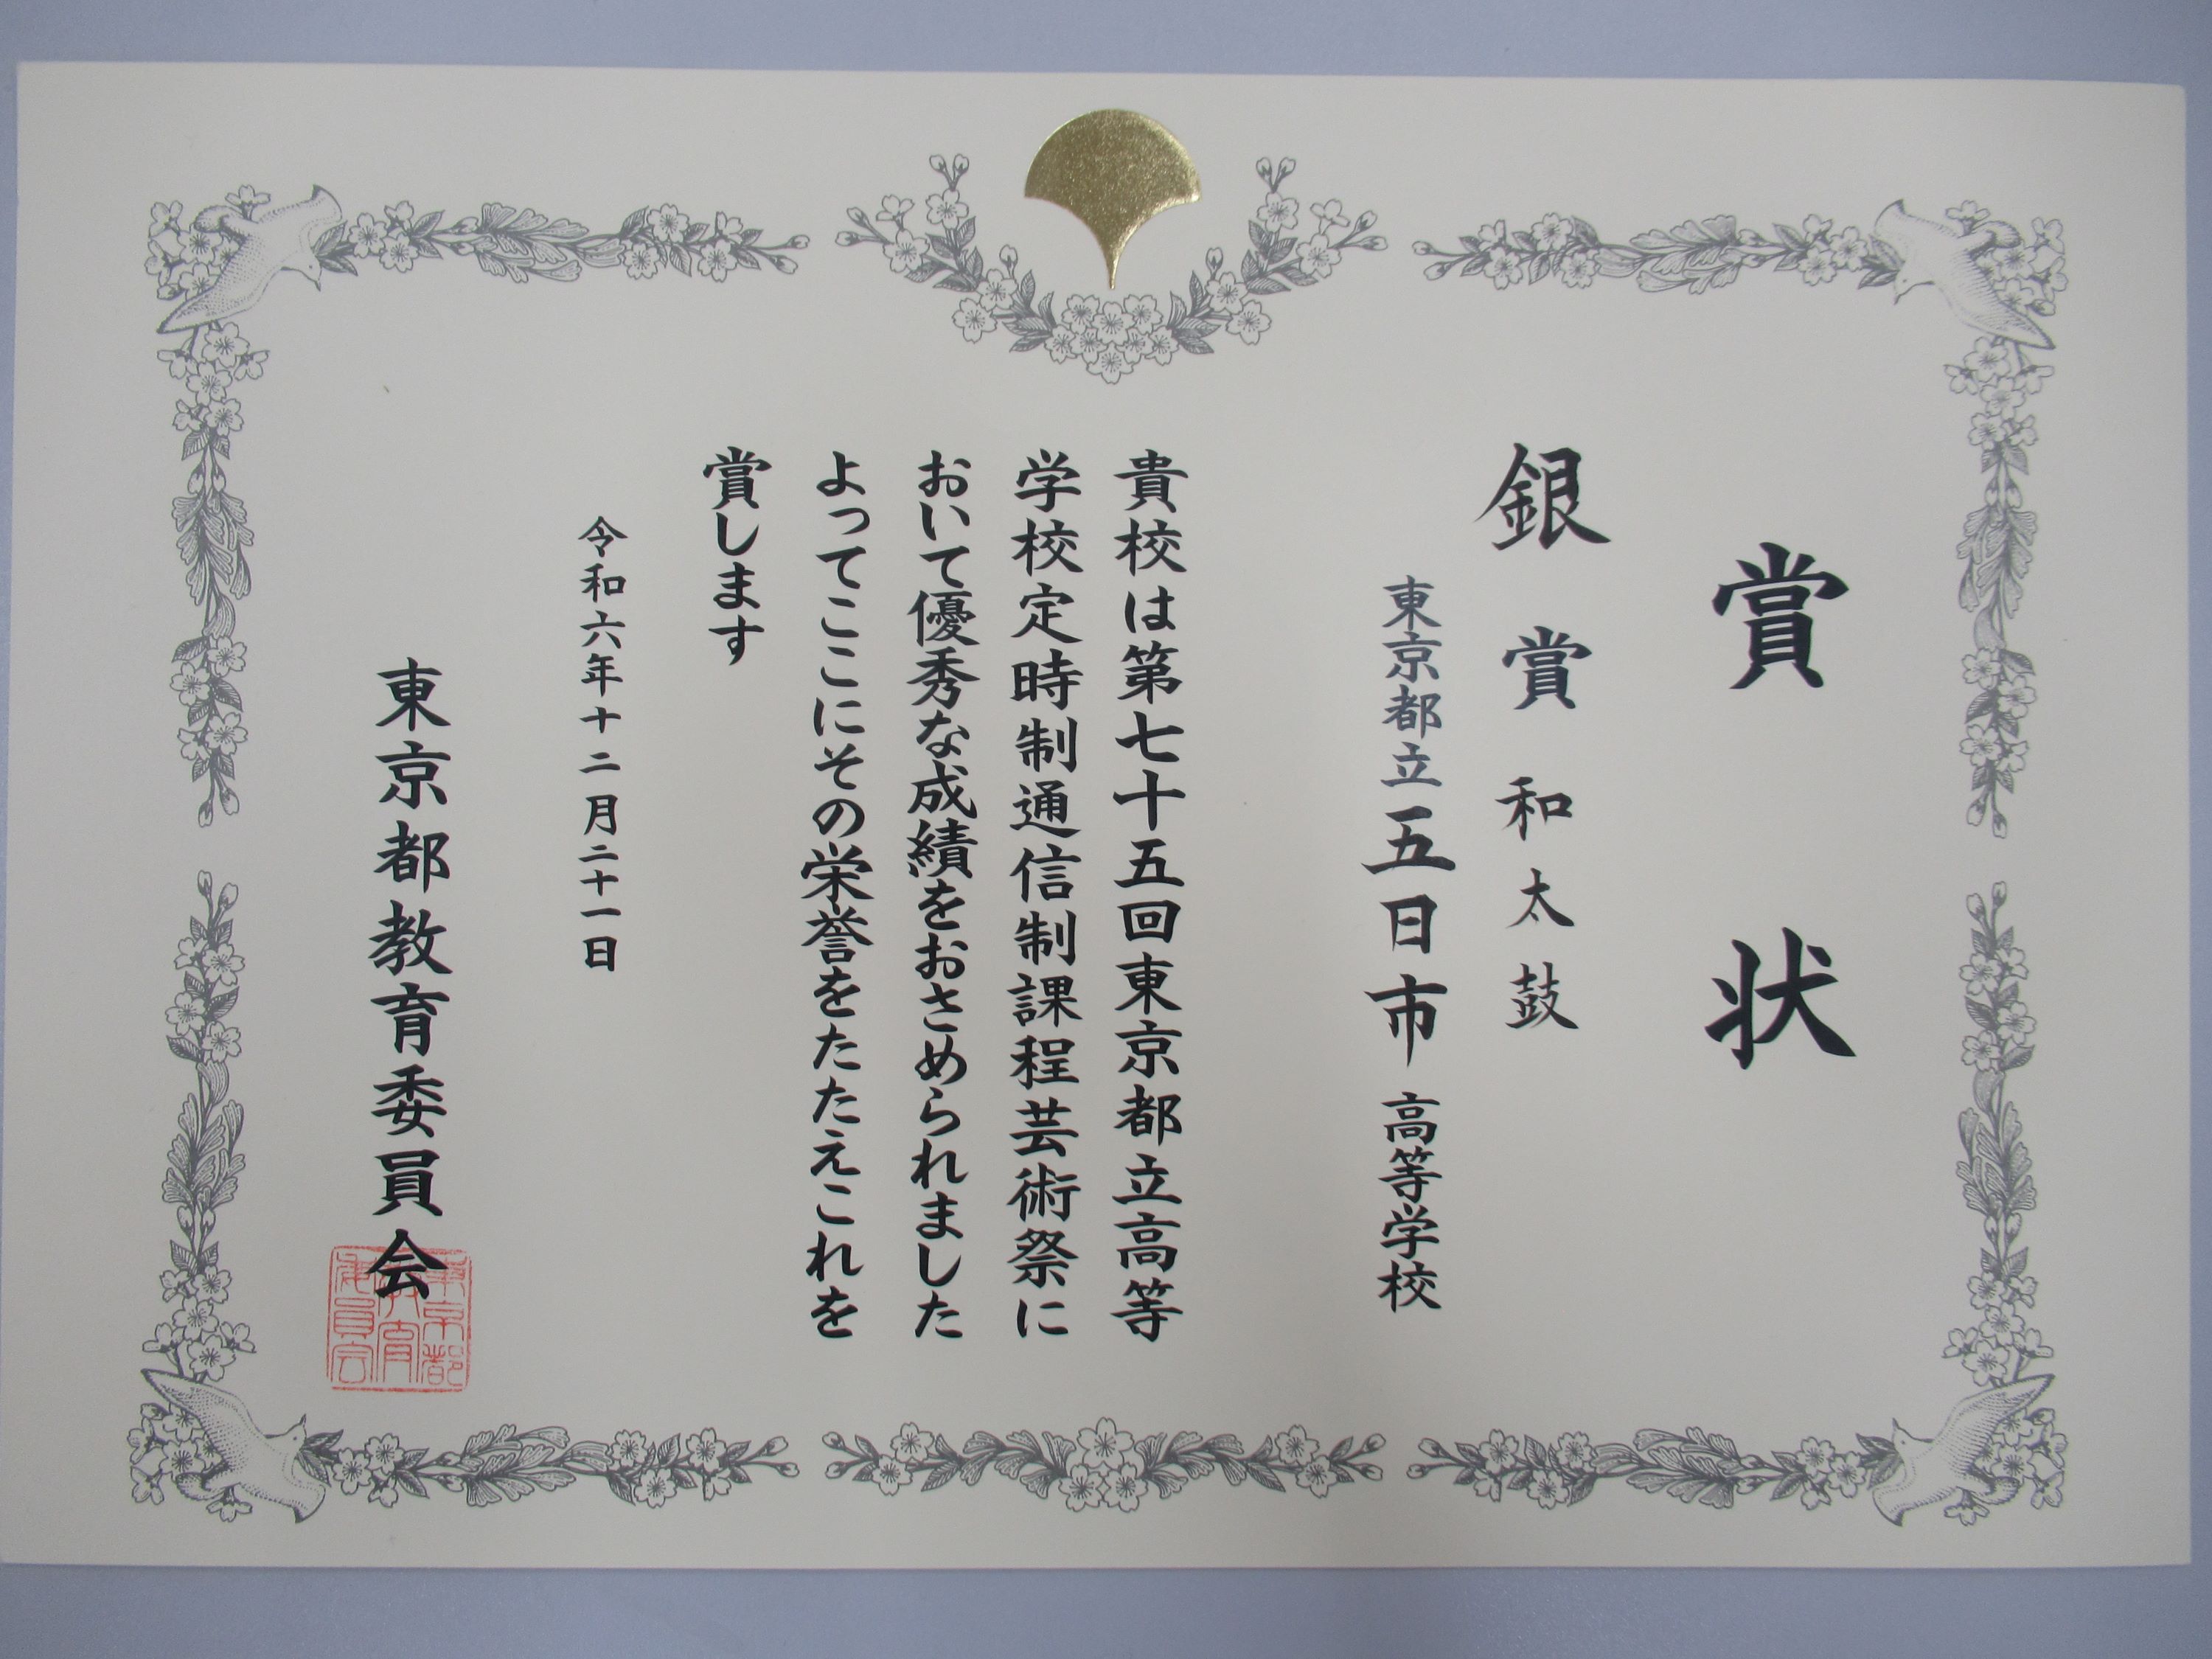 賞状
銀賞 和太鼓
東京都立五日市高等学校
貴校は第七十五回東京都立高等
学校定時制通信制課程芸術祭に
おいて優秀な成績をおさめられました
よってここにその栄誉をたたえこれを
賞します
令和六年十二月二十一日
東京都教育委員会
東京都
教育
委員会